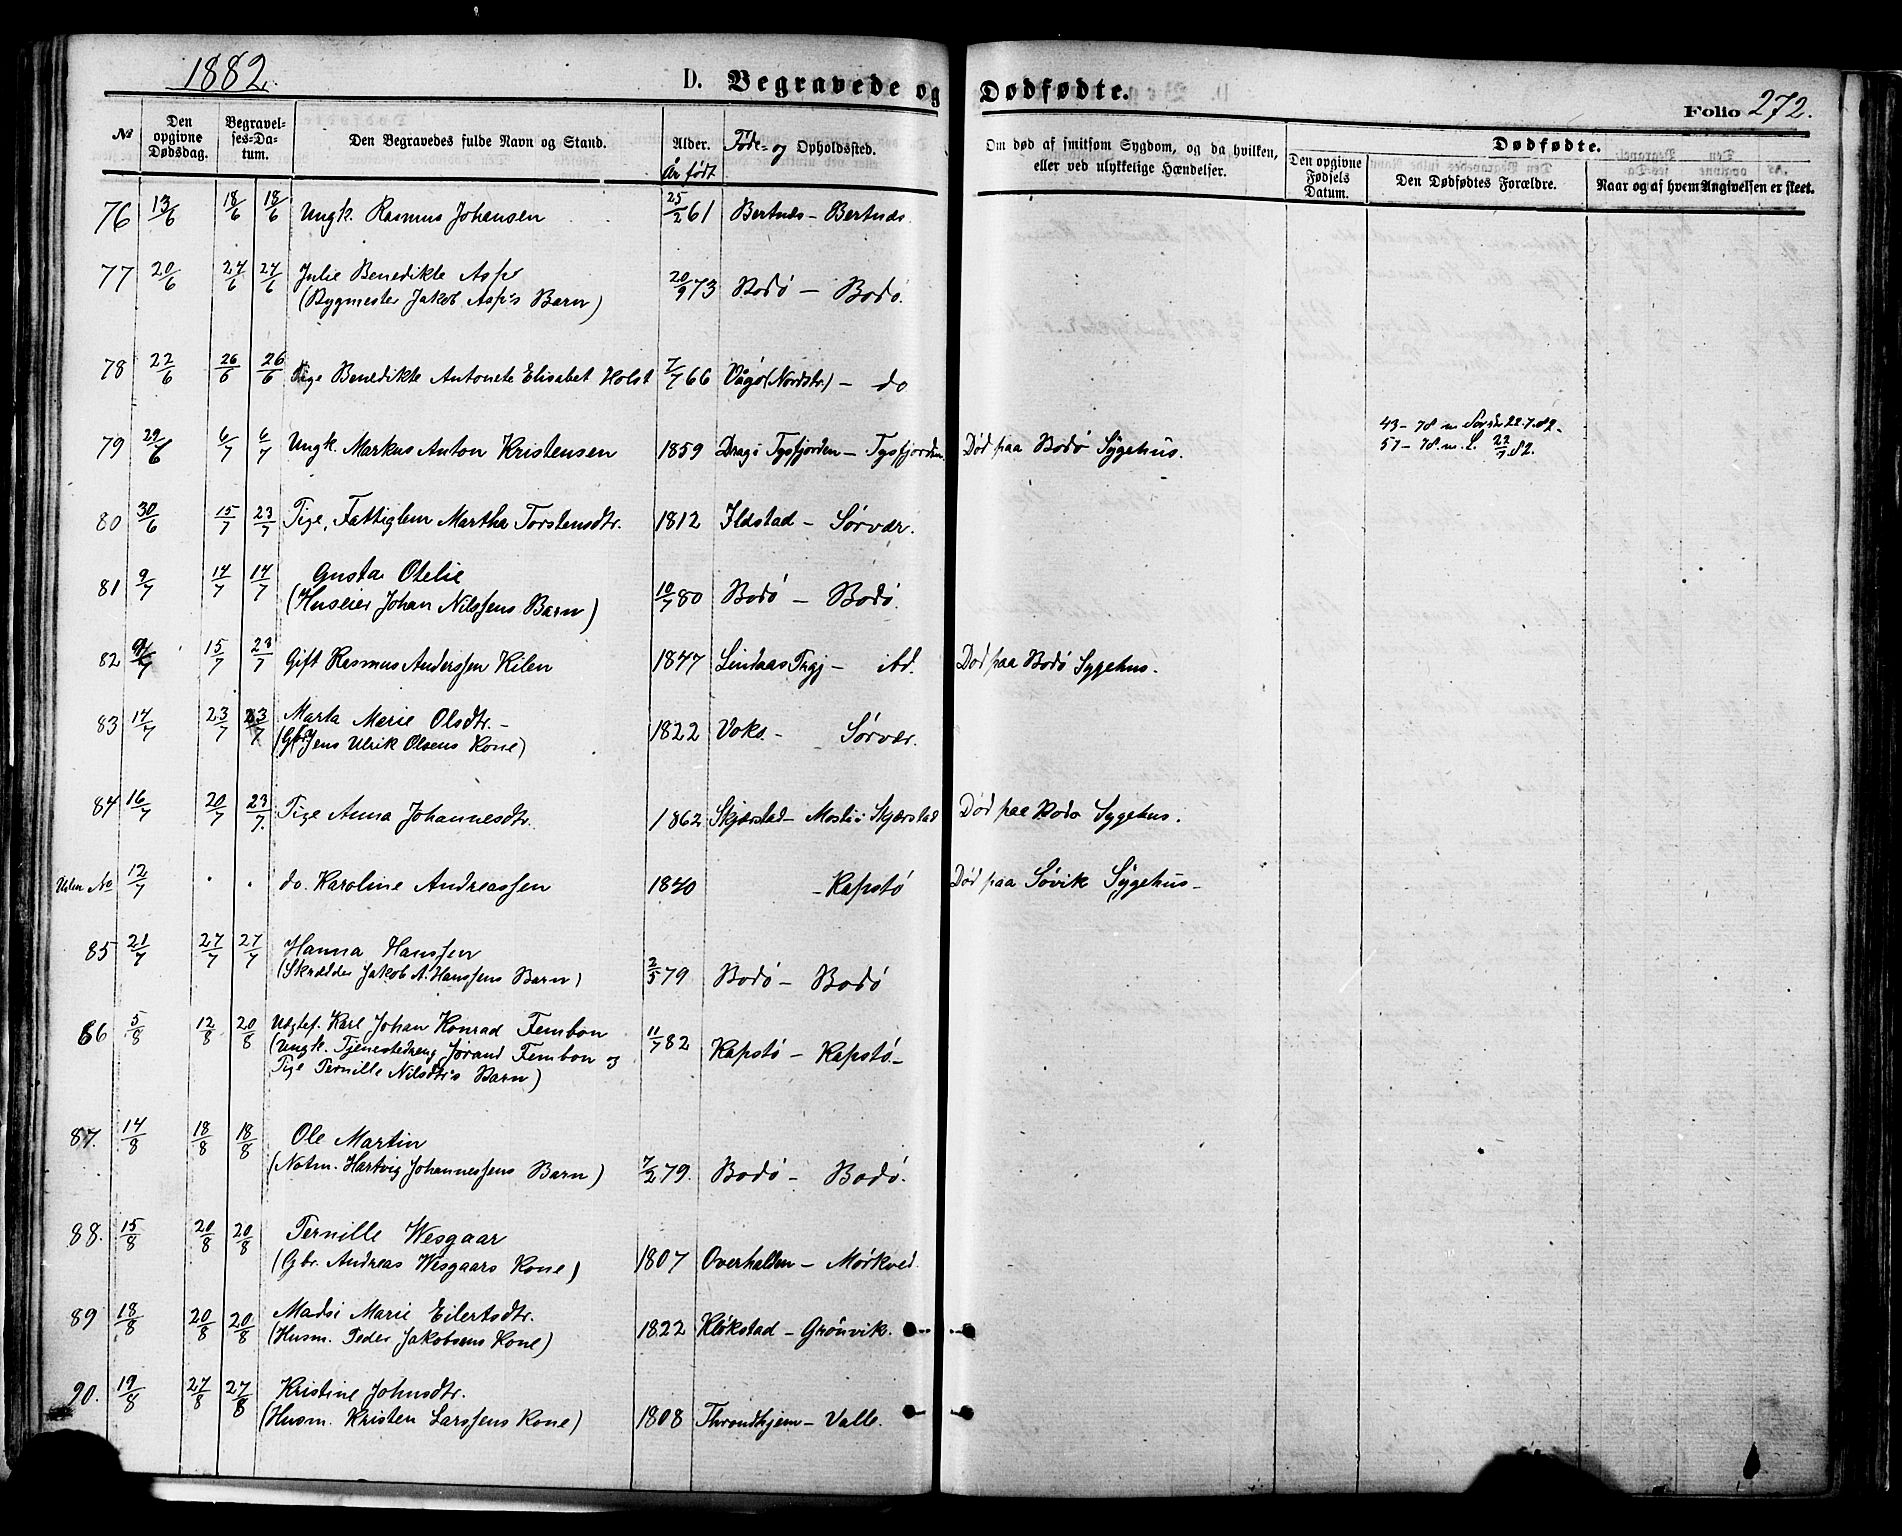 1882.
D. Begravede og Dødfødte.
Folio 272.
№ Den opgivne Dødsdag. Begravelses-Datum. Den Begravedes fulde Navn og Stand. Alder. År født Føde- og Opholdssted. Om død af smitsom Sygdom, og da hvilken, eller ved ulykkelige Hændelser. Dødfødte. Den opgivne Fødsels Datum. Den Dødfødtes Forældre. Naar og af hvem Angivelsen er skeet.
76 13/6 18/6 18/6 Ungk. Rasmus Johansen 25/2 61 Bertnæs - Bertnæs.
77 20/6 24/6 24/6 Julie Benedikte Asp
(Bygmester Jakob Asp's Barn) 20/9 73 Bodø - Bodø.
78 22/6 26/6 26/6 Pige Benedikte Antonete Elisabet Holst 7/7 66 Vågø (Nordstr.) - do
79 29/6 6/7 6/7 Ungk. Markus Anton Kristensen 1859 Drag i Tysfjorden - Tysfjorden. Død paa Bodø Sygehus.
43 - 78 m 22.7.82.
57 - 78. m. 22/7 82.
80 30/6 15/7 23/7 Pige, Fattiglem Martha Torstensdtr. 1812 Ildstad - Sørvær.
81 9/7 14/7 14/7 Gusta Otelie
(Huseier Johan Nilssens Barn) 10/7 80 Bodø - Bodø.
82 9/7 15/7 23/7 Gift Rasmus Anderssen Kilen 1847 Lindaas Prgj - ibd. Død paa Bodø Sygehus.
83 14/7 23/7 23/7 Marta Marie Olsdtr. -
(Gbr. Jens Ulrik Olsens Kone) 1822 Voks. - Sørvær.
84 16/7 20/7 23/7. Pige Anna Johannesdtr. 1862 Skjærstad - Mosti i Skjærstad Død paa Bodø Sygehus.
Uden No 12/7 . . do. Karoline Andreassen 1840 - Kapstø Død paa Søvik Sygehus -
85 21/7 27/7 27/7 Hanna Hanssen
(Skrædder Jakob A. Hanssens Barn) 2/5 79 Bodø - Bodø
86 5/8 12/8 20/8 Udgtef. Karl Johan Konrad Fembon
(Ungk. Tjenestedreng Jørand Fembon og
Pige Pernille Nilsdtr's Barn) 11/7 82 Kapstø - Kapstø -
87. 14/8 18/8 18/8 Ole Martin
(Notm. Hartvig Johannessens Barn) 7/2 79. Bodø - Bodø.
88. 15/8 20/8 20/8 Pernille Wesgaar
(Gbr. Andreas Wesgaars Kone) 1807 Overhalden - Mørkved.
89 18/8 20/8 20/8 Madsi Marie Eilertsdtr.
(Husm. Peder Jakobsens Kone) 1822 Kløkstad - Grønvik.
90. 19/8 27/8 27/8 Kristine Johnsdtr.
(Husm. Kristen Larssens Kone) 1808 Throndhjem - Valle.